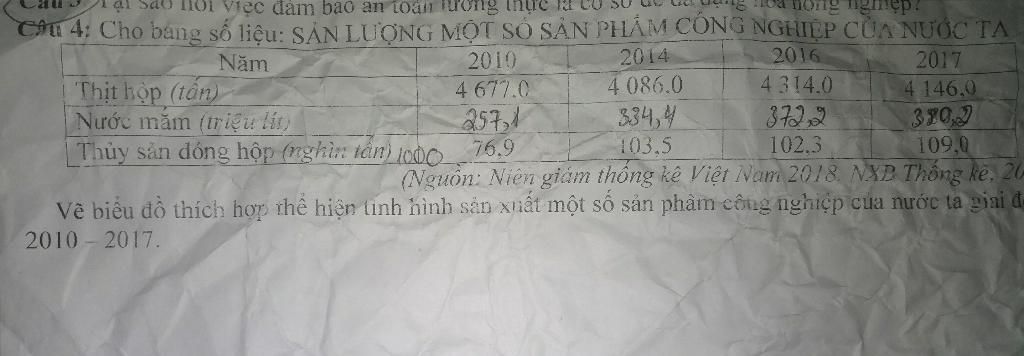 Câu 3 Tại sao nói việc đảm bảo an toàn lương thực là cơ sở để đa dạng hóa nông nghiệp?
Câu 4: Cho bảng số liệu: SẢN LƯỢNG MỘT SỐ SẢN PHẨM CÔNG NGHIỆP CỦA NƯỚC TA
Năm 2010 2014 2016 2017
Thịt hộp (tấn) 4 677.0 4 086.0 4 314.0 4 146.0
Nước mắm (triệu lít) 257,1 334,4 372,2 380,2
Thủy sản đóng hộp (nghìn tấn) 1000 76.9 103.5 102.3 109.0
(Nguồn: Niên giám thống kê Việt Nam 2018, NXB Thống kê, 20
Vẽ biểu đồ thích hợp thể hiện tình hình sản xuất một số sản phẩm công nghiệp của nước ta giai đ
2010 – 2017.